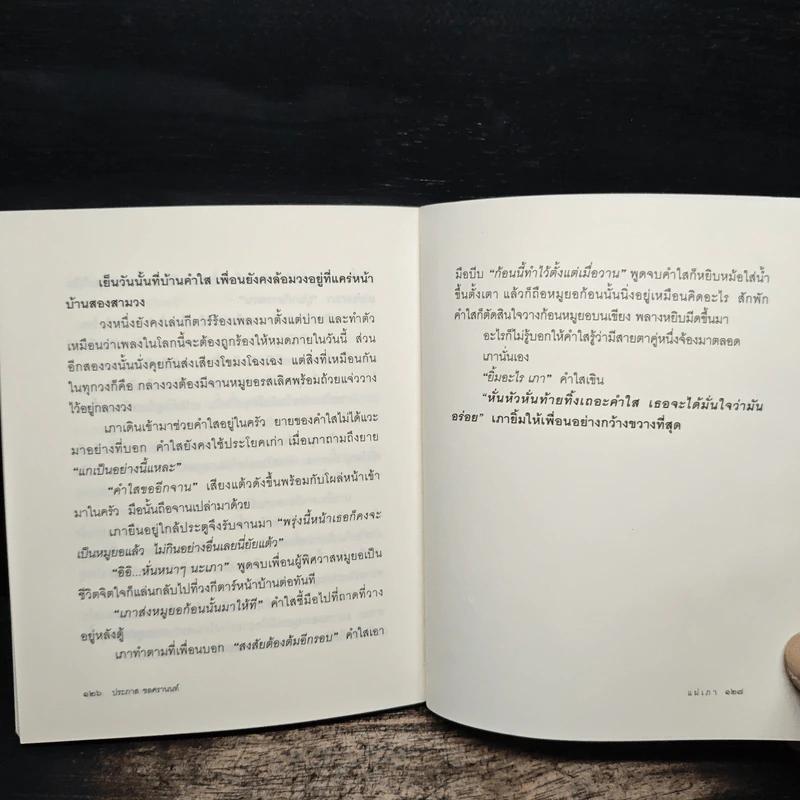 เย็นวันนั้นที่บ้านคำใส เพื่อนยังคงล้อมวงอยู่ที่แคร่หน้า
บ้านสองสามวง
วงหนึ่งยังคงเล่นกีตาร์ร้องเพลงมาตั้งแต่บ่าย และทำตัว
เหมือนว่าเพลงในโลกนี้จะต้องถูกร้องให้หมดภายในวันนี้ ส่วน
อีกสองวงนั้นนั่งคุยกันส่งเสียงโขมงโฉงเฉง แต่สิ่งที่เหมือนกัน
ในทุกวงก็คือ กลางวงต้องมีจานหมูยอรสเลิศพร้อมถ้วยแจ่ววาง
ไว้อยู่กลางวง
เภาเดินเข้ามาช่วยคำใสอยู่ในครัว ยายของคำใสไม่ได้แวะ
มาอย่างที่บอก คำใสยังคงใช้ประโยคเก่า เมื่อเภาถามถึงยาย
“แกเป็นอย่างนี้แหละ”
“คำใสขออีกจาน” เสียงแต้วดังขึ้นพร้อมกับโผล่หน้าเข้า
มาในครัว มือนั้นถือจานเปล่ามาด้วย
เภายืนอยู่ใกล้ประตูจึงรับจานมา “พรุ่งนี้หน้าเธอก็คงจะ
เป็นหมูยอแล้ว ไม่กินอย่างอื่นเลยนี่ยัยแต้ว”
“อิอิ...หั่นหนาๆ นะเภา” พูดจบเพื่อนผู้พิศวาสหมูยอเป็น
ชีวิตจิตใจก็แล่นกลับไปที่วงกีตาร์หน้าบ้านต่อทันที
“เภาส่งหมูยอก้อนนั้นมาให้ที” คำใสชี้มือไปที่ถาดที่วาง
อยู่หลังตู้
เภาทำตามที่เพื่อนบอก “สงสัยต้องต้มอีกรอบ” คำใสเอา
๑๒๖ ประภาส ชลศรานนท์
มือบีบ “ก้อนนี้ทำไว้ตั้งแต่เมื่อวาน” พูดจบคำใสก็หยิบหม้อใส่น้ำ
ขึ้นตั้งเตา แล้วก็ถือหมูยอก้อนนั้นนิ่งอยู่เหมือนคิดอะไร สักพัก
คำใสก็ตัดสินใจวางก้อนหมูยอบนเขียง พลางหยิบมีดขึ้นมา
อะไรก็ไม่รู้บอกให้คำใสรู้ว่ามีสายตาคู่หนึ่งจ้องมาตลอด
เภานั่นเอง
“ยิ้มอะไร เภา” คำใสเขิน
“หั่นหัวหั่นท้ายทิ้งเถอะคำใส เธอจะได้มั่นใจว่ามัน
อร่อย” เภายิ้มให้เพื่อนอย่างกว้างขวางที่สุด
แม่เภา ๑๒๗